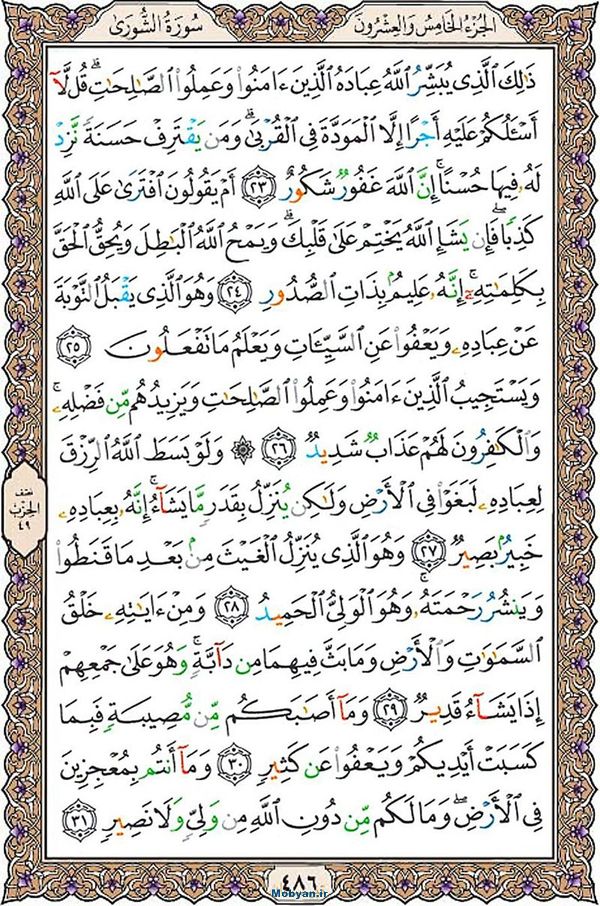 الجزء الخامس والعشرون
سورة الشورى
ذَٰلِكَ ٱلَّذِي يُبَشِّرُ ٱللَّهُ عِبَادَهُ ٱلَّذِينَ ءَامَنُوا۟ وَعَمِلُوا۟ ٱلصَّـٰلِحَـٰتِ ۗ قُل لَّآ
أَسْـَٔلُكُمْ عَلَيْهِ أَجْرًا إِلَّا ٱلْمَوَدَّةَ فِي ٱلْقُرْبَىٰ ۗ وَمَن يَقْتَرِفْ حَسَنَةً نَّزِدْ
لَهُۥ فِيهَا حُسْنًا ۚ إِنَّ ٱللَّهَ غَفُورٌ شَكُورٌ ٢٣ أَمْ يَقُولُونَ ٱفْتَرَىٰ عَلَى ٱللَّهِ
كَذِبًا ۖ فَإِن يَشَإِ ٱللَّهُ يَخْتِمْ عَلَىٰ قَلْبِكَ ۗ وَيَمْحُ ٱللَّهُ ٱلْبَـٰطِلَ وَيُحِقُّ ٱلْحَقَّ
بِكَلِمَـٰتِهِۦٓ ۚ إِنَّهُۥ عَلِيمٌۢ بِذَاتِ ٱلصُّدُورِ ٢٤ وَهُوَ ٱلَّذِي يَقْبَلُ ٱلتَّوْبَةَ
عَنْ عِبَادِهِۦ وَيَعْفُوا۟ عَنِ ٱلسَّيِّـَٔاتِ وَيَعْلَمُ مَا تَفْعَلُونَ ٢٥
وَيَسْتَجِيبُ ٱلَّذِينَ ءَامَنُوا۟ وَعَمِلُوا۟ ٱلصَّـٰلِحَـٰتِ وَيَزِيدُهُم مِّن فَضْلِهِۦ ۚ
وَٱلْكَـٰفِرُونَ لَهُمْ عَذَابٌ شَدِيدٌ ٢٦ ۞ وَلَوْ بَسَطَ ٱللَّهُ ٱلرِّزْقَ
لِعِبَادِهِۦ لَبَغَوْا۟ فِي ٱلْأَرْضِ وَلَـٰكِن يُنَزِّلُ بِقَدَرٍ مَّا يَشَآءُ ۚ إِنَّهُۥ بِعِبَادِهِۦ
خَبِيرٌۢ بَصِيرٌ ٢٧ وَهُوَ ٱلَّذِي يُنَزِّلُ ٱلْغَيْثَ مِنۢ بَعْدِ مَا قَنَطُوا۟
وَيَنشُرُ رَحْمَتَهُۥ ۚ وَهُوَ ٱلْوَلِيُّ ٱلْحَمِيدُ ٢٨ وَمِنْ ءَايَـٰتِهِۦ خَلْقُ
ٱلسَّمَـٰوَٰتِ وَٱلْأَرْضِ وَمَا بَثَّ فِيهِمَا مِن دَآبَّةٍ ۚ وَهُوَ عَلَىٰ جَمْعِهِمْ
إِذَا يَشَآءُ قَدِيرٌ ٢٩ وَمَآ أَصَـٰبَكُم مِّن مُّصِيبَةٍ فَبِمَا
كَسَبَتْ أَيْدِيكُمْ وَيَعْفُوا۟ عَن كَثِيرٍ ٣٠ وَمَآ أَنتُم بِمُعْجِزِينَ
فِي ٱلْأَرْضِ ۖ وَمَا لَكُم مِّن دُونِ ٱللَّهِ مِن وَلِيٍّ وَلَا نَصِيرٍ ٣١
نصف
الحزب
٤٩
٤٨٦
Mobyan.ir